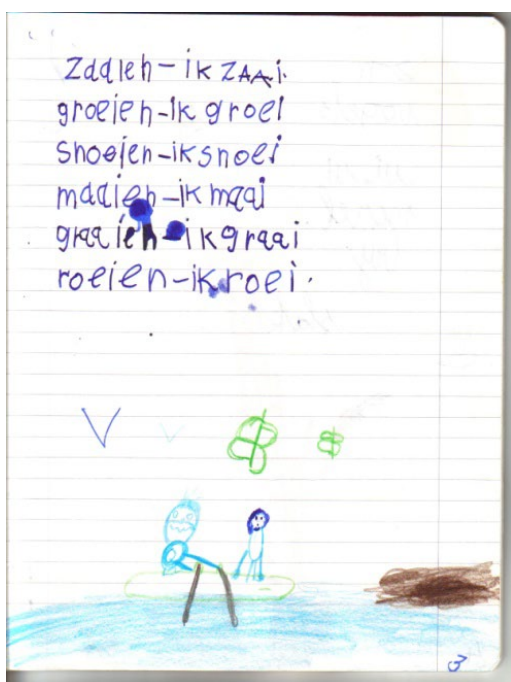 zaaien-ik ZAAi.
groeien-ik groei
Snoeien-ik snoei
maaien-ik maai
graaien-ik graai
roeien-ik roei.
3